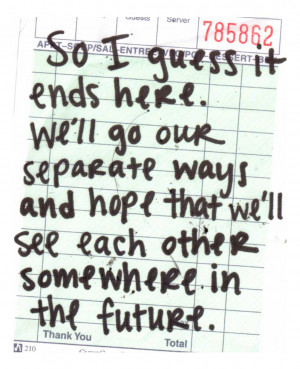 Guests Server
785862
APPT-SOUP/SAL-ENTREE-
So I guess it
ends here.
We'll go our
separate ways
and hope that we'll
see each other
somewhere in
the future.
Thank You Total
210